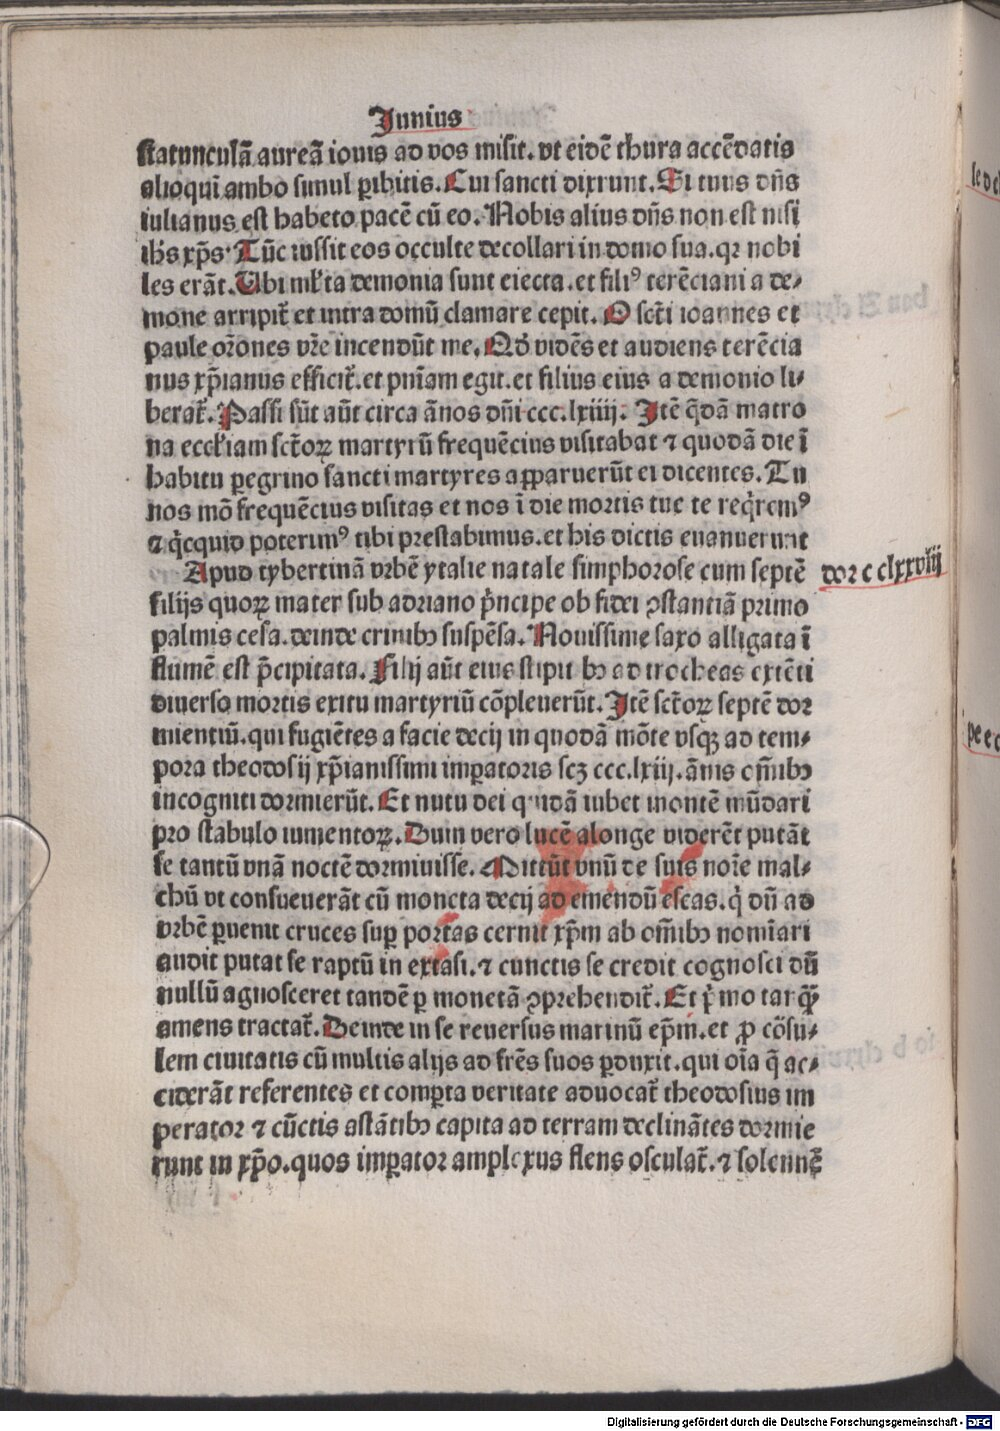 Junius
statunculā aureā iouis ad vos misit. vt eidē thura accēdatis
alioqui ambo simul ꝑibitis. Cui sancti dixrunt. Si tuus dn̄s
iulianus est habeto pacē cū eo. Nobis alius dn̄s non est nisi
ihs xp̄s. Tūc iussit eos occulte decollari in domo sua. qꝛ nobi
les erāt. Ubi mł'ta demonia sunt eiecta. et filiꝰ terēciani a de⸗
mone arripit̄ et intra domū clamare cepit. O sct̄i ioannes et
paule or̄ones vr̄e incendūt me. Qd' vidēs et audiens terēcia
nus xp̄ianus efficit̄. et pn̄iam egit. et filius eius a demonio li⸗
berat̄. Passi sūt aūt circa ānos dn̄i ccc.lxiiij. Itē q̄dā matro
na eccl'iam sct̄oꝝ martyrū frequēcius visitabat ⁊ quodā die ī
habitu ꝑegrino sancti martyres aꝑparuerūt ei dicentes. Tu
nos mō frequēcius visitas et nos ī die mortis tue te req̇remꝰ
⁊ q̇cquid poterimꝰ tibi prestabimus. et his dictis euanuerunt
Apud tybertinā vrbē ytalie natale simphorose cum septē
dor c clxxviij
filijs quoꝝ mater sub adriano p̄ncipe ob fidei ꝯstantiā primo
palmis cesa. deinde crinibꝫ suspēsa. Nouissime saxo alligata ī
flumē est p̄cipitata. Filij aūt eius stipitibꝫ ad trocheas extēti
diuerso mortis exitu martyriū cōpleuerūt. Itē sct̄oꝝ septē dor
mientiū. qui fugiētes a facie decij in quodā mōte vsqꝫ ad tem⸗
pora theodosij xp̄ianissimi imꝑatoris scꝫ ccc.lxiij. ānis om̄ibꝫ
incogniti dormierūt. Et nutu dei quidā iubet montē mūdari
pro stabulo iumentoꝝ. Dum vero lucē alonge viderēt putāt
se tantū vnā noctē dormiuisse. Mittūt vnū de suis noīe mal⸗
chū vt consueuerāt cū moneta decij ad emendū escas. q̇ dū ad
vrbē ꝑuenit cruces suꝑ portas cernit xp̄m ab om̄ibꝫ nomīari
audit putat se raptū in extasi. ⁊ cunctis se credit cognosci dū
nullū agnosceret tandē ꝑ monetā ꝯprehendit̄. Et ṗmo tanqꝫ̄
amens tractat̄. Deinde in se reuersus marinū ep̄m. et ꝓcōsu⸗
lem ciuitatis cū multis alijs ad fr̄es suos ꝑduxit. qui oīa q̄ ac⸗
ciderāt referentes et comꝑta veritate aduocat̄ theodosius im
perator ⁊ cūctis astātibꝫ capita ad terram declinātes dormie
runt in xp̄o. quos imꝑator amplexus flens osculat̄. ⁊ solennē
Digitalisierung gefördert durch die Deutsche Forschungsgemeinschaft - DFG